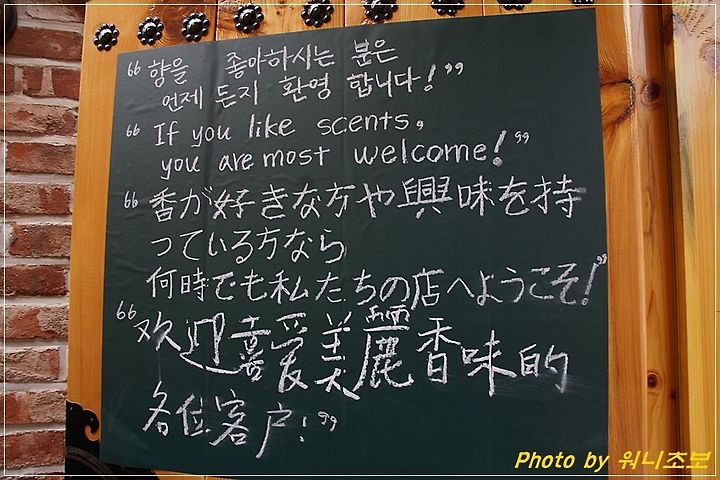 “ 향을 좋아하시는 분은
언제 든지 환영 합니다! ”
“ If you like scents,
you are most welcome! ”
“ 香が好きな方や興味を持
っている方なら
何時でも私たちの店へようこそ! ”
“ 欢迎喜爱美麗香味的
各位客户! ”
Photo by 워니초보